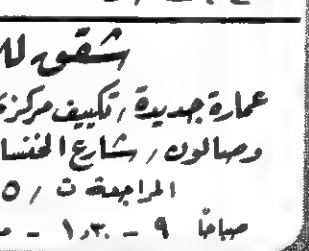 شقق لل
عمارة جديدة / تكييف مركزي
وصالون / شارع الخنسا
المراجعة ت / ٥
صباحًا ٩ - ١,٣٠ -